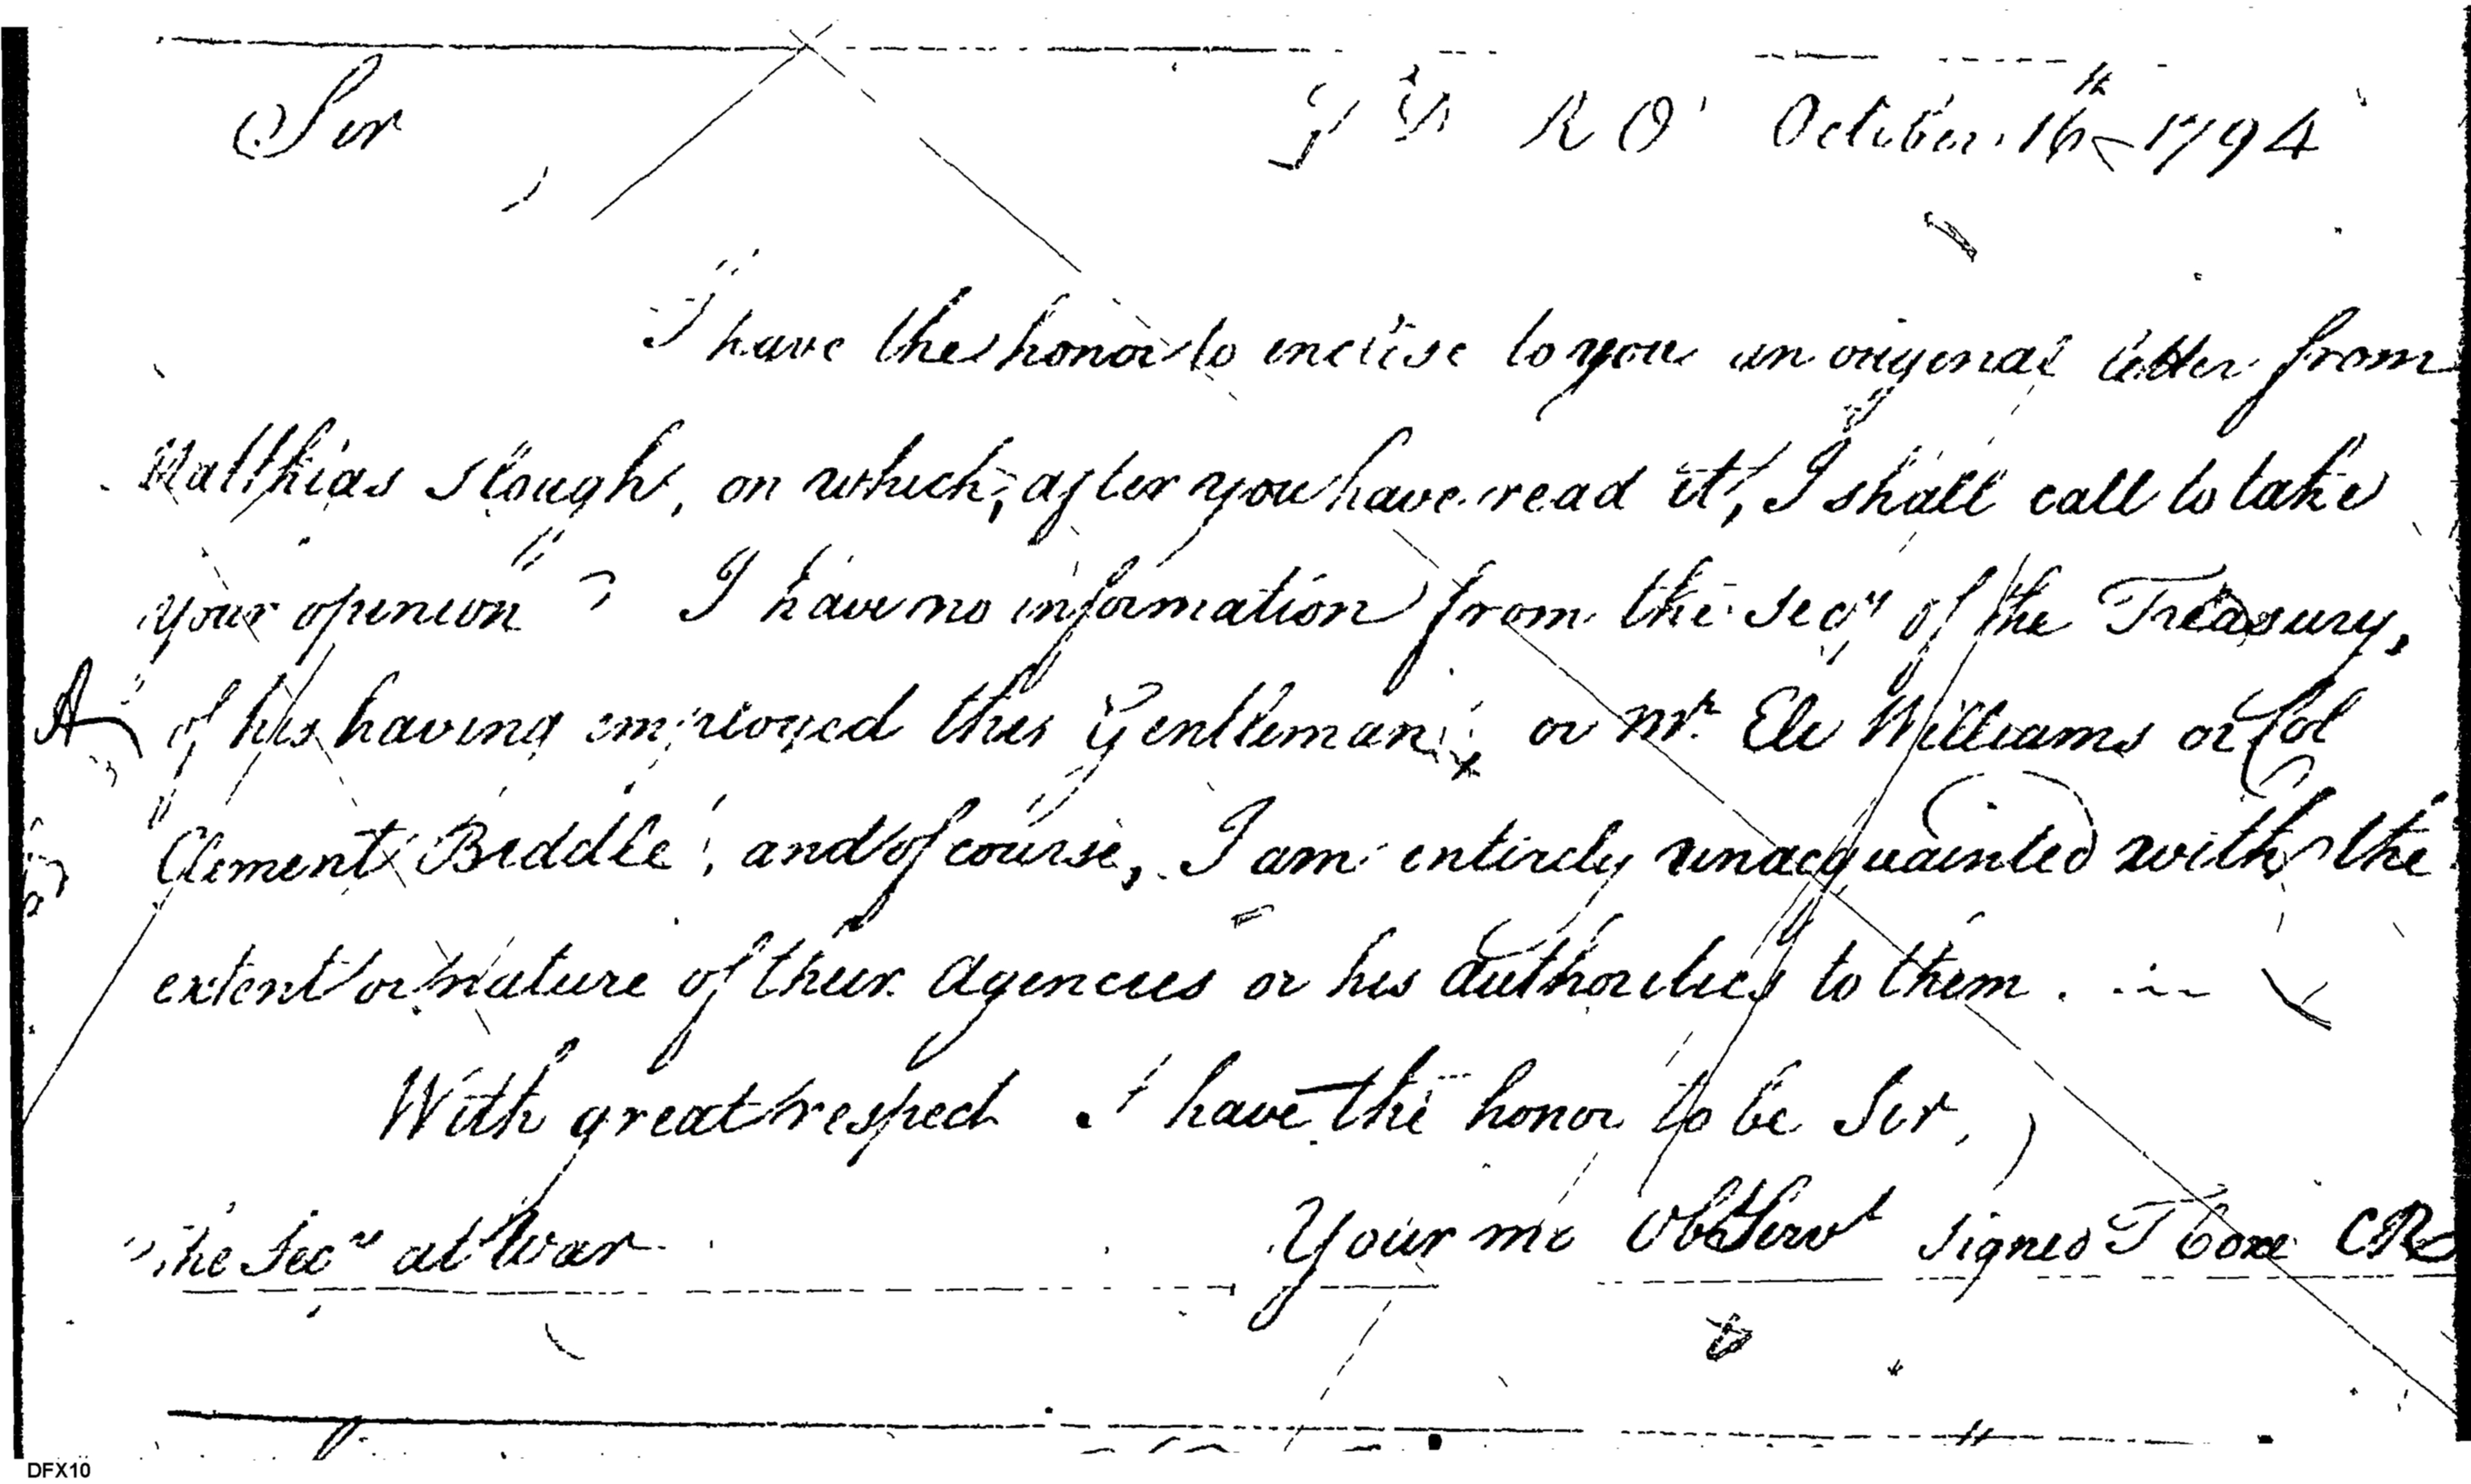 Sir T D R O October 16th 1794
I have the honor to inclose to you an original letter from
Matthias Slough, on which, after you have read it, I shall call to take
your opinion I have no information from the Secy of the Treasury,
A of his having employed this Gentleman, or Mr. Eli Williams or Col
Clement Biddle, and of course, I am entirely unacquainted with the
extent or nature of their Agencies or his authorities to them.
With great respect I have the honor to be Sir,
The Secy at War Your mo Obt Servt signed T Coxe CR
DFX10